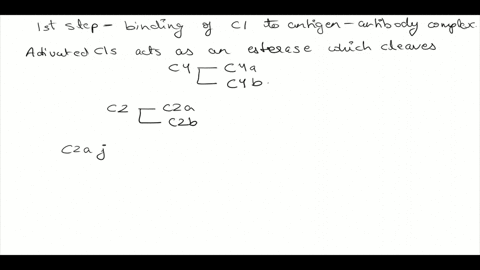 1st step - binding of C1 to antigen-antibody complex
Activated C1s acts as an esterase which cleaves
C4 C4a
C4b.
C2 C2a
C2b
C2a j